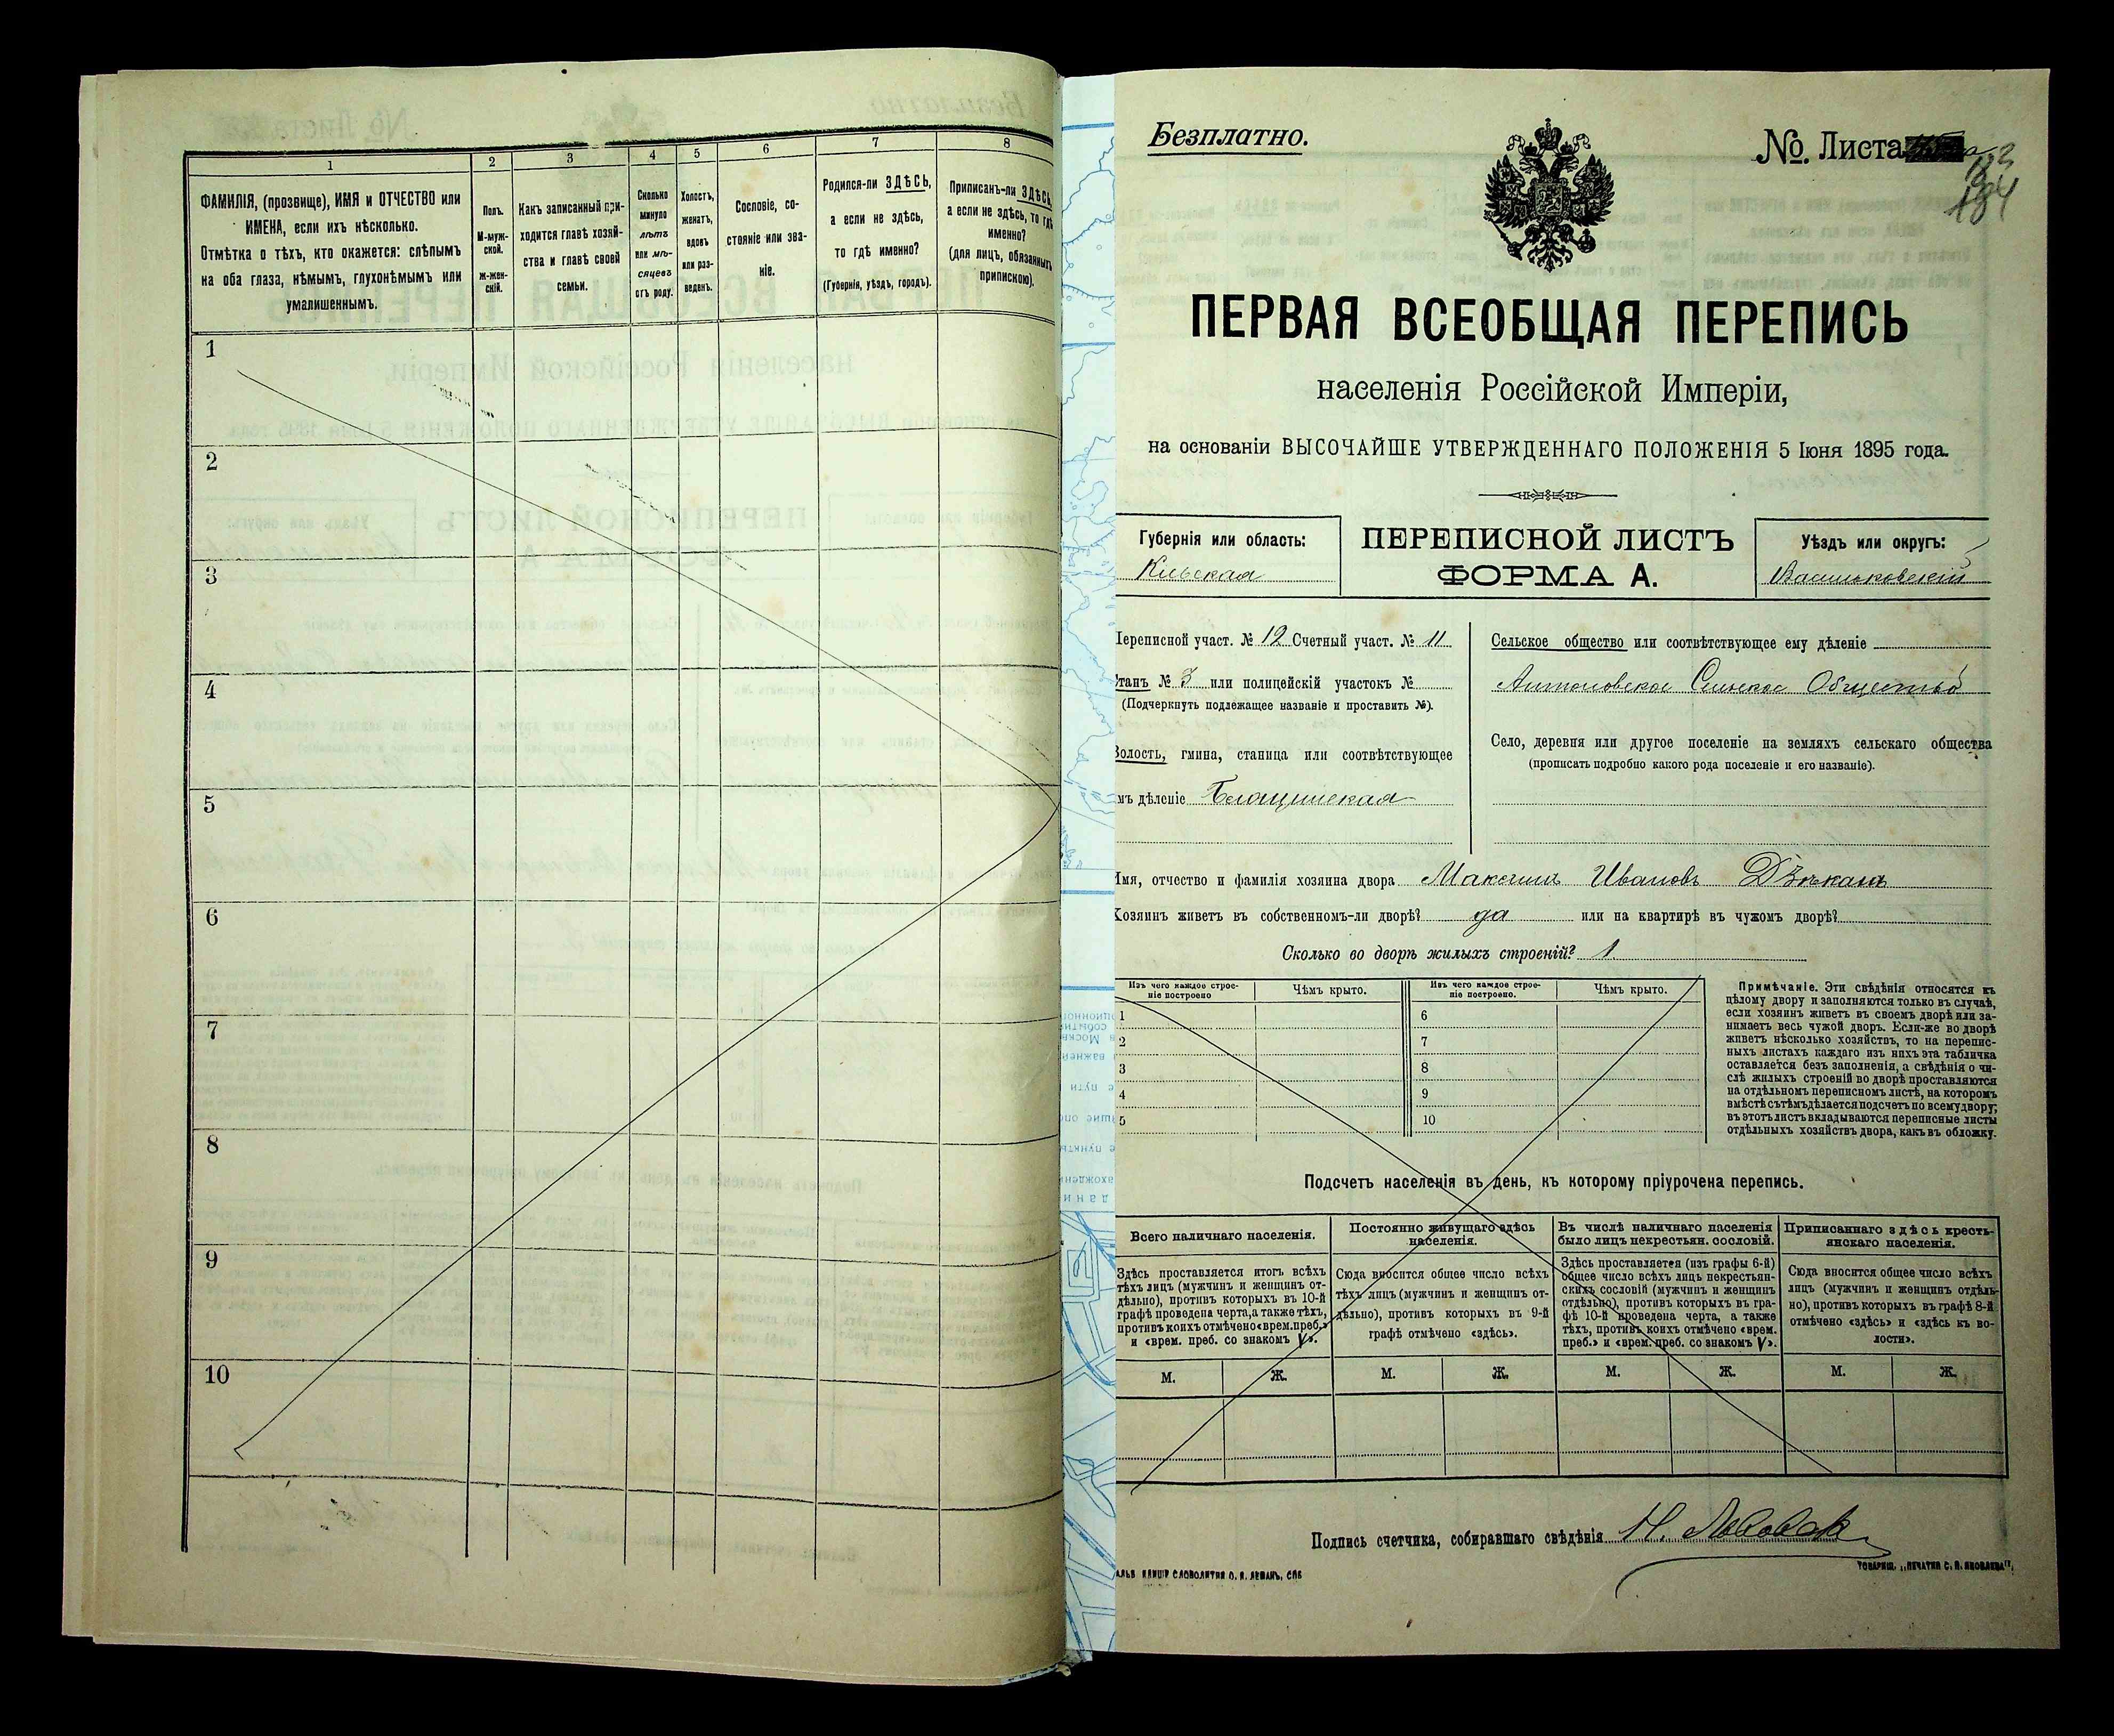 1
2
3
4
5
6
7
8
ФАМИЛІЯ, (прозвище), ИМЯ и ОТЧЕСТВО или
ИМЕНА, если ихъ нѣсколько.
Отмѣтка о тѣхъ, кто окажется: слѣпымъ
на оба глаза, нѣмымъ, глухонѣмымъ или
умалишеннымъ.
Полъ.
М-муж-
ской.
ж-жен-
скій.
Какъ записанный при-
ходится главѣ хозяй-
ства и главѣ своей
семьи.
Сколько
минуло
лѣтъ
или мѣ-
сяцевъ
отъ роду.
Холостъ,
женатъ,
вдовъ
или раз-
веденъ.
Сословіе, со-
стояніе или зва-
ніе.
Родился-ли ЗДѢСЬ,
а если не здѣсь,
то гдѣ именно?
(Губернія, уѣздъ, городъ).
Приписанъ-ли ЗДѢСЬ,
а если не здѣсь, то гдѣ
именно?
(для лицъ, обязанныхъ
припискою).
1
2
3
4
5
6
7
8
9
10
Безплатно.
№ Листа
ПЕРВАЯ ВСЕОБЩАЯ ПЕРЕПИСЬ
населенія Россійской Имперіи,
на основаніи ВЫСОЧАЙШЕ УТВЕРЖДЕННАГО ПОЛОЖЕНІЯ 5 Іюня 1895 года.
Губернія или область:
Кіевская
ПЕРЕПИСНОЙ ЛИСТЪ
ФОРМА А.
Уѣздъ или округъ:
Васильковскій
Переписной участ. № 12 Счетный участ. № 11
Станъ № 3 или полицейскій участокъ №
(Подчеркнуть подлежащее названіе и проставить №).
Волость, гмина, станица или соотвѣтствующее
имъ дѣленіе
Сельское общество или соотвѣтствующее ему дѣленіе
Антоновское Сельское Общество
Село, деревня или другое поселеніе на земляхъ сельскаго общества
(прописать подробно какого рода поселеніе и его названіе).
Имя, отчество и фамилія хозяина двора Максимъ Ивановъ
Хозяинъ живетъ въ собственномъ-ли дворѣ? да или на квартирѣ въ чужомъ дворѣ?
Сколько во дворѣ жилыхъ строеній? 1
Изъ чего каждое строе-
ніе построено
Чѣмъ крыто.
Изъ чего каждое строе-
ніе построено.
Чѣмъ крыто.
1
2
3
4
5
6
7
8
9
10
Примѣчаніе. Эти свѣдѣнія относятся къ
цѣлому двору и заполняются только въ случаѣ,
если хозяинъ живетъ въ своемъ дворѣ или за-
нимаетъ весь чужой дворъ. Если-же во дворѣ
живетъ нѣсколько хозяйствъ, то на перепис-
ныхъ листахъ каждаго изъ нихъ эта табличка
оставляется безъ заполненія, а свѣдѣнія о чи-
слѣ жилыхъ строеній во дворѣ проставляются
на отдѣльномъ переписномъ листѣ, на которомъ
вмѣстѣ съ тѣмъ дѣлается подсчетъ по всему двору;
въ этотъ листъ вкладываются переписные листы
отдѣльныхъ хозяйствъ двора, какъ въ обложку.
Подсчетъ населенія въ день, къ которому пріурочена перепись.
Всего наличнаго населенія.
Постоянно живущаго здѣсь
населенія.
Въ числѣ наличнаго населенія
было лицъ некрестьян. сословій.
Приписаннаго здѣсь кресть-
янскаго населенія.
Здѣсь проставляется итогъ всѣхъ
тѣхъ лицъ (мужчинъ и женщинъ от-
дѣльно), противъ которыхъ въ 10-й
графѣ проведена черта, а также тѣхъ,
противъ коихъ отмѣчено «врем. преб.»
и «врем. преб. со знакомъ V».
Сюда вносится общее число всѣхъ
тѣхъ лицъ (мужчинъ и женщинъ от-
дѣльно), противъ которыхъ въ 9-й
графѣ отмѣчено «здѣсь».
Здѣсь проставляется (изъ графы 6-й)
общее число всѣхъ лицъ некрестьян-
скихъ сословій (мужчинъ и женщинъ
отдѣльно), противъ которыхъ въ гра-
фѣ 10-й проведена черта, а также
тѣхъ, противъ коихъ отмѣчено «врем.
преб.» и «врем. преб. со знакомъ V».
Сюда вносится общее число всѣхъ
лицъ (мужчинъ и женщинъ отдѣль-
но), противъ которыхъ въ графѣ 8-й
отмѣчено «здѣсь» и «здѣсь къ во-
лости».
М. Ж. М. Ж. М. Ж. М. Ж.
Подпись счетчика, собиравшаго свѣдѣнія
СЛОВОЛИТНЯ О. И. ЛЕМАНЪ, СПБ
ТОВАРИЩ. „ПЕЧАТНЯ С. П. ЯКОВЛЕВА".